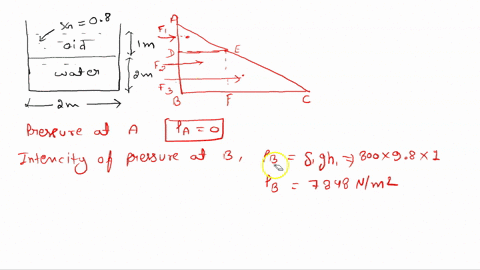 Sn = 0.8
oid
1m
water
2m
2m
A
F1
D
E
F2
F3
B
F
C
Pressure at A PA = 0
Intencity of pressure at B, PB = S1 gh1 => 800 x 9.8 x 1
PB = 7848 N/m2